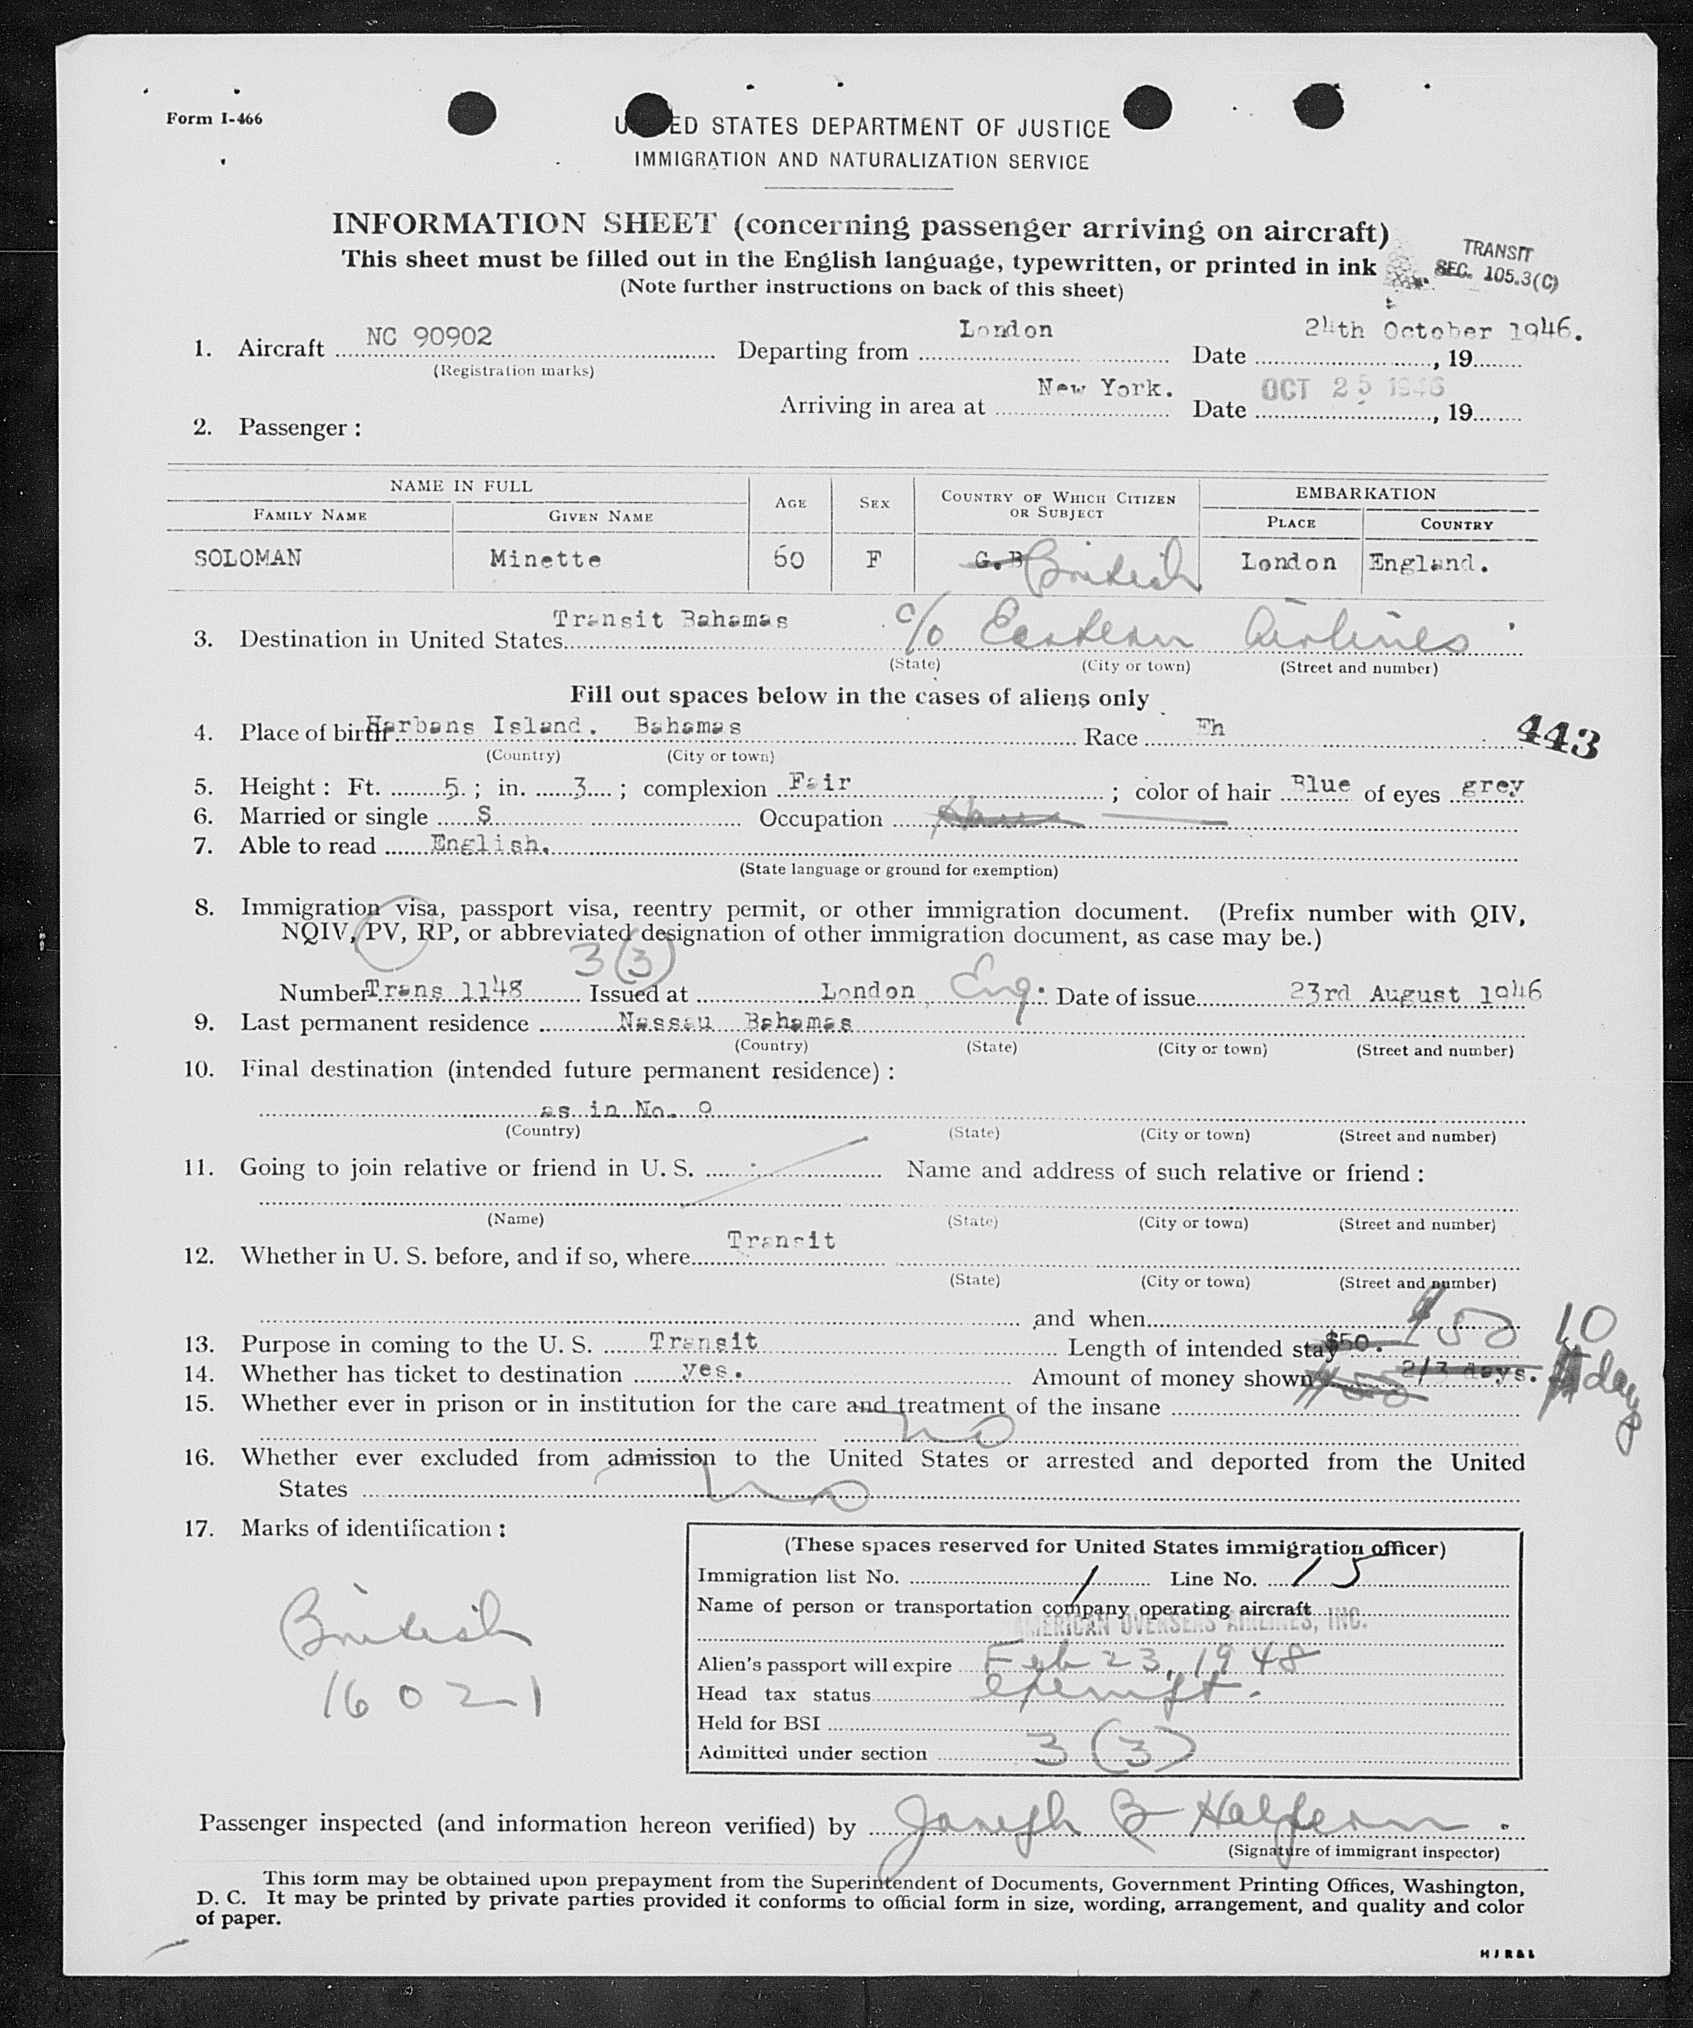 Form I-466
UNITED STATES DEPARTMENT OF JUSTICE
IMMIGRATION AND NATURALIZATION SERVICE
INFORMATION SHEET (concerning passenger arriving on aircraft)
This sheet must be filled out in the English language, typewritten, or printed in ink
(Note further instructions on back of this sheet)
TRANSIT
SEC. 105.3(C)
1. Aircraft NC 90902 Departing from London Date 24th October 1946. , 19
(Registration marks)
Arriving in area at New York. Date OCT 25 1946 , 19
2. Passenger :
NAME IN FULL AGE SEX COUNTRY OF WHICH CITIZEN OR SUBJECT EMBARKATION
FAMILY NAME GIVEN NAME PLACE COUNTRY
SOLOMAN Minette 60 F G.B British London England.
3. Destination in United States Transit Bahamas c/o Eastern Airlines
(State) (City or town) (Street and number)
Fill out spaces below in the cases of aliens only
4. Place of birth Harbans Island. Bahamas Race Eh 443
(Country) (City or town)
5. Height : Ft. 5 ; in. 3 ; complexion Fair ; color of hair Blue of eyes grey
6. Married or single S Occupation
7. Able to read English.
(State language or ground for exemption)
8. Immigration visa, passport visa, reentry permit, or other immigration document. (Prefix number with QIV,
NQIV, PV, RP, or abbreviated designation of other immigration document, as case may be.)
3 (3)
Number Trans 1148 Issued at London Eng. Date of issue 23rd August 1946
9. Last permanent residence Nassau Bahamas
(Country) (State) (City or town) (Street and number)
10. Final destination (intended future permanent residence) :
as in No. 9
(Country) (State) (City or town) (Street and number)
11. Going to join relative or friend in U. S. Name and address of such relative or friend :
(Name) (State) (City or town) (Street and number)
12. Whether in U. S. before, and if so, where Transit
(State) (City or town) (Street and number)
and when
13. Purpose in coming to the U. S. Transit Length of intended stay $50. $50 10 days
14. Whether has ticket to destination yes. Amount of money shown 2/3 days.
15. Whether ever in prison or in institution for the care and treatment of the insane
no
16. Whether ever excluded from admission to the United States or arrested and deported from the United
States no
17. Marks of identification :
British
16021
(These spaces reserved for United States immigration officer)
Immigration list No. 1 Line No. 15
Name of person or transportation company operating aircraft
AMERICAN OVERSEAS AIRLINES, INC.
Alien's passport will expire Feb 23, 1948
Head tax status exempt.
Held for BSI
Admitted under section 3 (3)
Passenger inspected (and information hereon verified) by Joseph B Halpern
(Signature of immigrant inspector)
This form may be obtained upon prepayment from the Superintendent of Documents, Government Printing Offices, Washington,
D. C. It may be printed by private parties provided it conforms to official form in size, wording, arrangement, and quality and color
of paper.